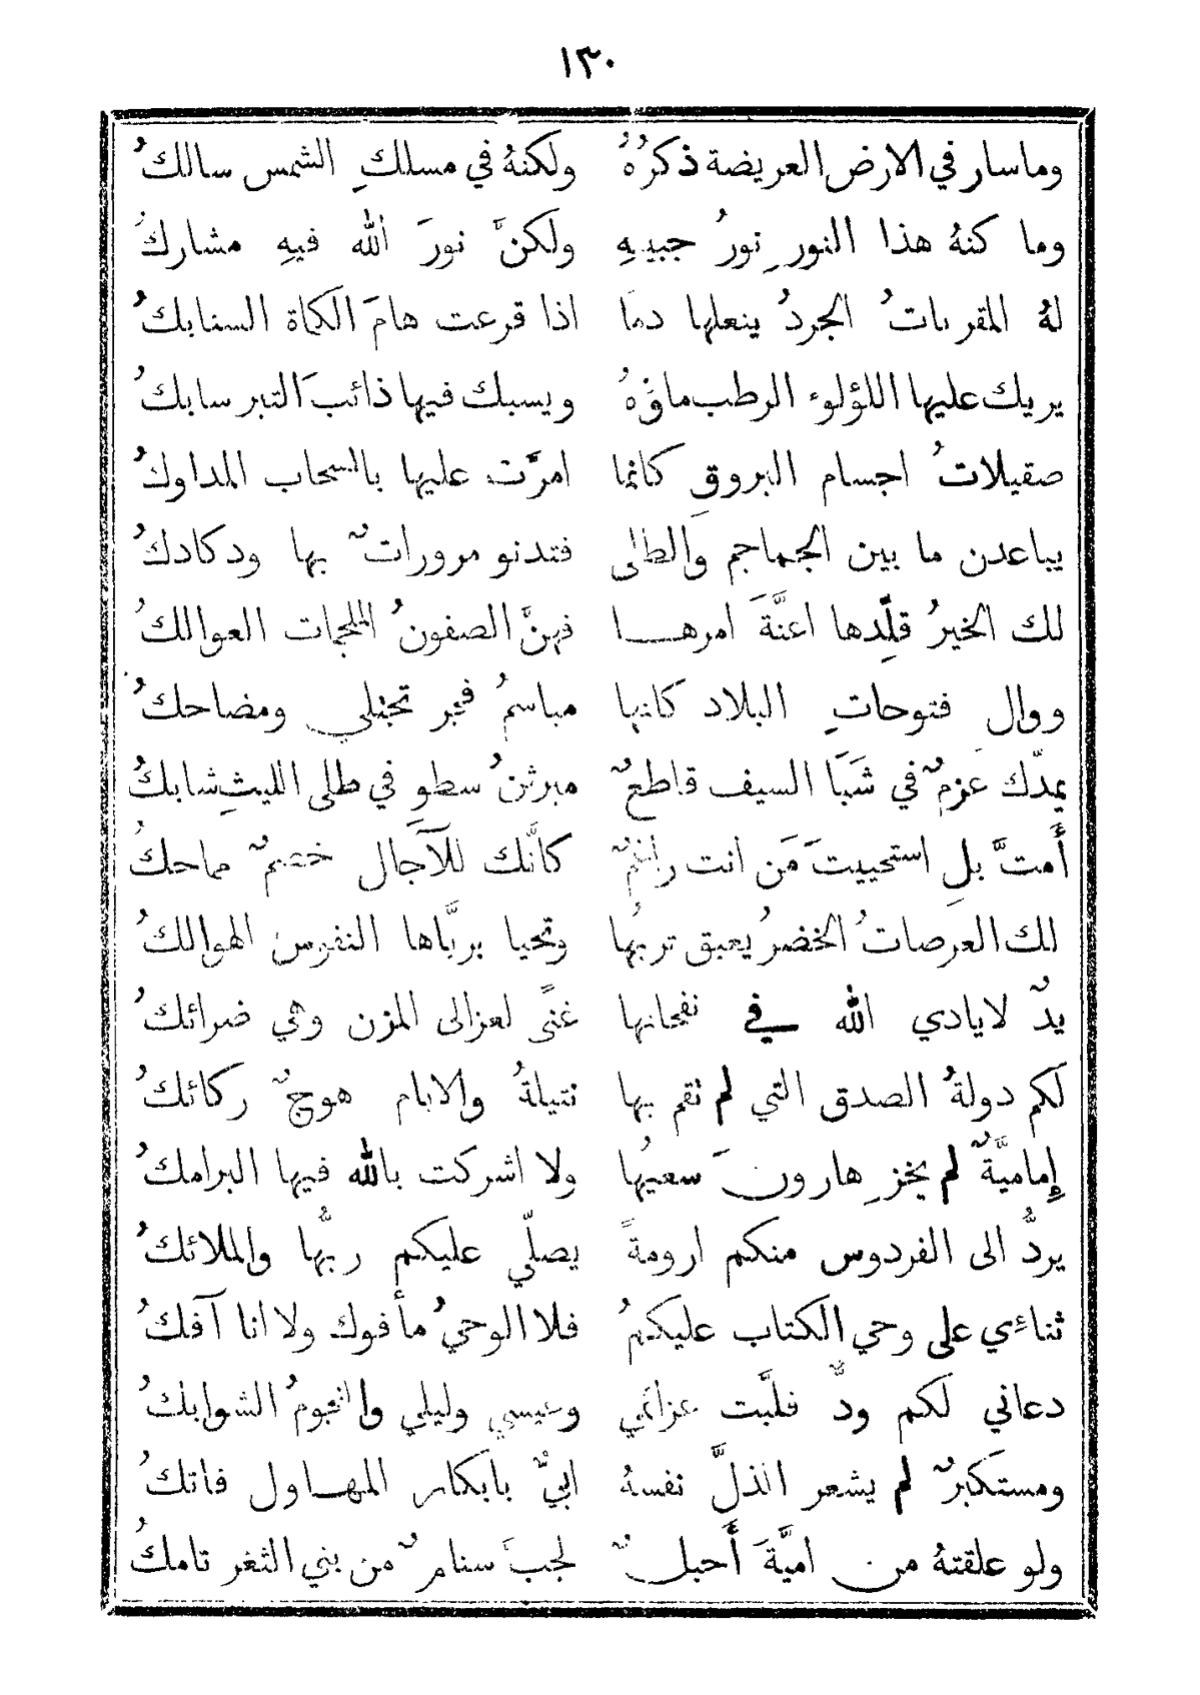 ١٣٠
وما سار في الارض العريضة ذكرُهُ ولكنهُ في مسلكِ الشمس سالكُ
وما كنهُ هذا النورِ نورُ جبينهِ ولكنَّ نورَ الله فيهِ مشاركُ
لهُ المقرباتُ الجردُ ينعلها دمًا اذا قرعت هامَ الكماة السنابكُ
يريك عليها اللؤلوء الرطب ماؤهُ ويسبك فيها ذائبَ التبر سابكُ
صقيلاتُ اجسام البروقِ كانما امرَّت عليها بالسحاب المداوكُ
يباعدن ما بين الجماجم والطلى فتدنو مروراتٌ بها ودكادكُ
لك الخيرُ قلِّدها اعنَّةَ امرهـا فهنَّ الصفونُ الملجمات العوالكُ
ووالِ فتوحاتِ البلاد كانها مباسمُ فجر تجتلي ومضاحكُ
يمدّك عَزمٌ في شَبَا السيف قاطعٌ مبرثنُ سطوِ في طلى الليثِ شابكُ
أَمتَّ بلِ استحييتَ مَن انت راغمٌ كانَّك للآجال خصمٌ مماحكُ
لك العرصاتُ الخضرُ يعبق تربُها وتحيا بريَّاها النفوس الهوالكُ
يدٌ لايادي الله في نفحاتها غنًى لعزالى المزن وهي ضرائكُ
لَكم دولةُ الصدق التي لم تقم بها نتيلةُ والايام هوجٌ ركائكُ
إِماميَّةٌ لم يخزِ هارونَ سعيُها ولا اشركت بالله فيها البرامكُ
يردُّ الى الفردوس منكم ارومةً يصلّي عليكم ربُّها والملائكُ
ثناءي على وحي الكتاب عليكمُ فلا الوحيُ مأفوك ولا انا آفكُ
دعاني لكم ودٌّ فلبَّت عزائمي وعيسي وليلي والنجومُ الشوابكُ
ومستكبرٌ لم يشعر الذلَّ نفسهُ ابيٌّ بابكار المهـاول فاتكُ
ولو علقتهُ من اميَّةَ أَحبلٌ لجبَ سنامٌ من بني الثغر تامكُ